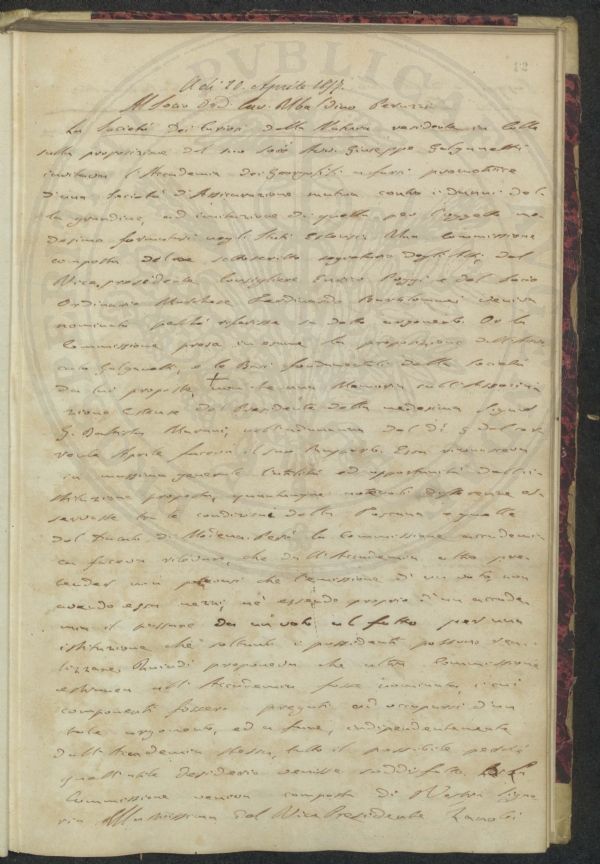 12
Adi 20. Aprile 1857.
Al Socio Ord. Cav. Ubaldino Peruzzi
La Società dei Lettori della Natura residente in Colle
sulla proposizione del suo Socio Avv. Giuseppe Galganetti
invitava l'Accademia dei Georgofili a farsi promotrice
d'una Società d'Assicurazione mutua contro i danni del
la grandine, ad imitazione di quella per l'oggetto me
desimo formatasi negli Stati Estensi. Una Commissione
composta del sottoscritto segretario degli Atti, del
Vicepresidente Consigliere Enrico Poggi e del Socio
Ordinario Marchese Ferdinando Bartolommei veniva
nominata perché riferisse su detto argomento. Or la
Commissione presa in esame la proposizione dell'Avvo
cato Galganetti, e le Basi fondamentali della Società
da lui proposta, + non che una Memoria sull'Associa
zione Estense del Presidente della medesima Signor
G. Batista, nell'adunanza del dì 5 del cor
rente Aprile faceva il suo Rapporto. Essa riconosceva
in massima generale l'utilità ed opportunità dell'i
stituzione proposta, quantunque notevoli differenze os
servasse tra le condizioni della Toscana e quelle
del Ducato di Modena. Però la Commissione accademi
ca faceva rilevare, che dall'Accademia altro pre
tender non potevasi che l'emissione di un voto non
avendo essa mezzi, né essendo proprio d'un accade
mia il passare da un voto al fatto per una
istituzione che soltanto i possidenti possono rea
lizzare. Quindi proponeva che altra Commissione
estranea all'Accademia fosse nominata, i cui
componenti fossero pregati ad occuparsi d'un
tale argomento, ed a fare, indipendentemente
dall'Accademia stessa, tutto il possibile perché
quest'utile desiderio venisse soddisfatto. La
Commissione veniva composta di Vostra Signo
ria Illustrissima del Vice Presidente